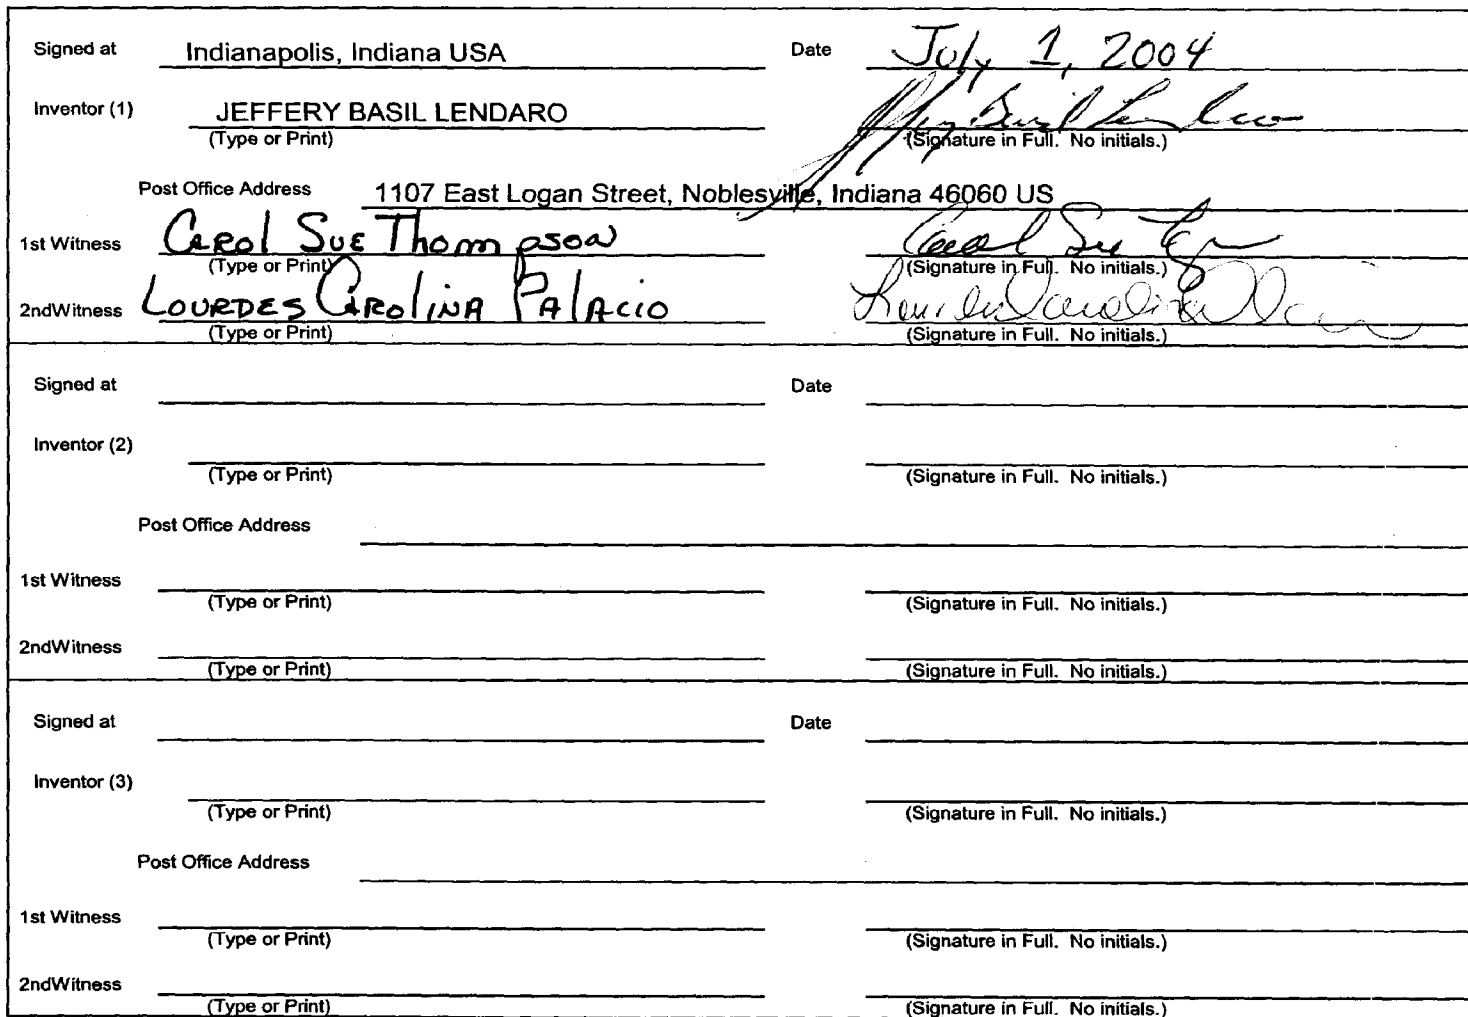 Signed at Indianapolis, Indiana USA Date July 1, 2004
Inventor (1) JEFFERY BASIL LENDARO
(Type or Print) (Signature in Full. No initials.)
Post Office Address 1107 East Logan Street, Noblesville, Indiana 46060 US
1st Witness Carol Sue Thompson Carol Sue
(Type or Print) (Signature in Full. No initials.)
2ndWitness Lourdes Carolina Palacio Lourdes Carolina Palacio
(Type or Print) (Signature in Full. No initials.)
Signed at Date
Inventor (2)
(Type or Print) (Signature in Full. No initials.)
Post Office Address
1st Witness
(Type or Print) (Signature in Full. No initials.)
2ndWitness
(Type or Print) (Signature in Full. No initials.)
Signed at Date
Inventor (3)
(Type or Print) (Signature in Full. No initials.)
Post Office Address
1st Witness
(Type or Print) (Signature in Full. No initials.)
2ndWitness
(Type or Print) (Signature in Full. No initials.)